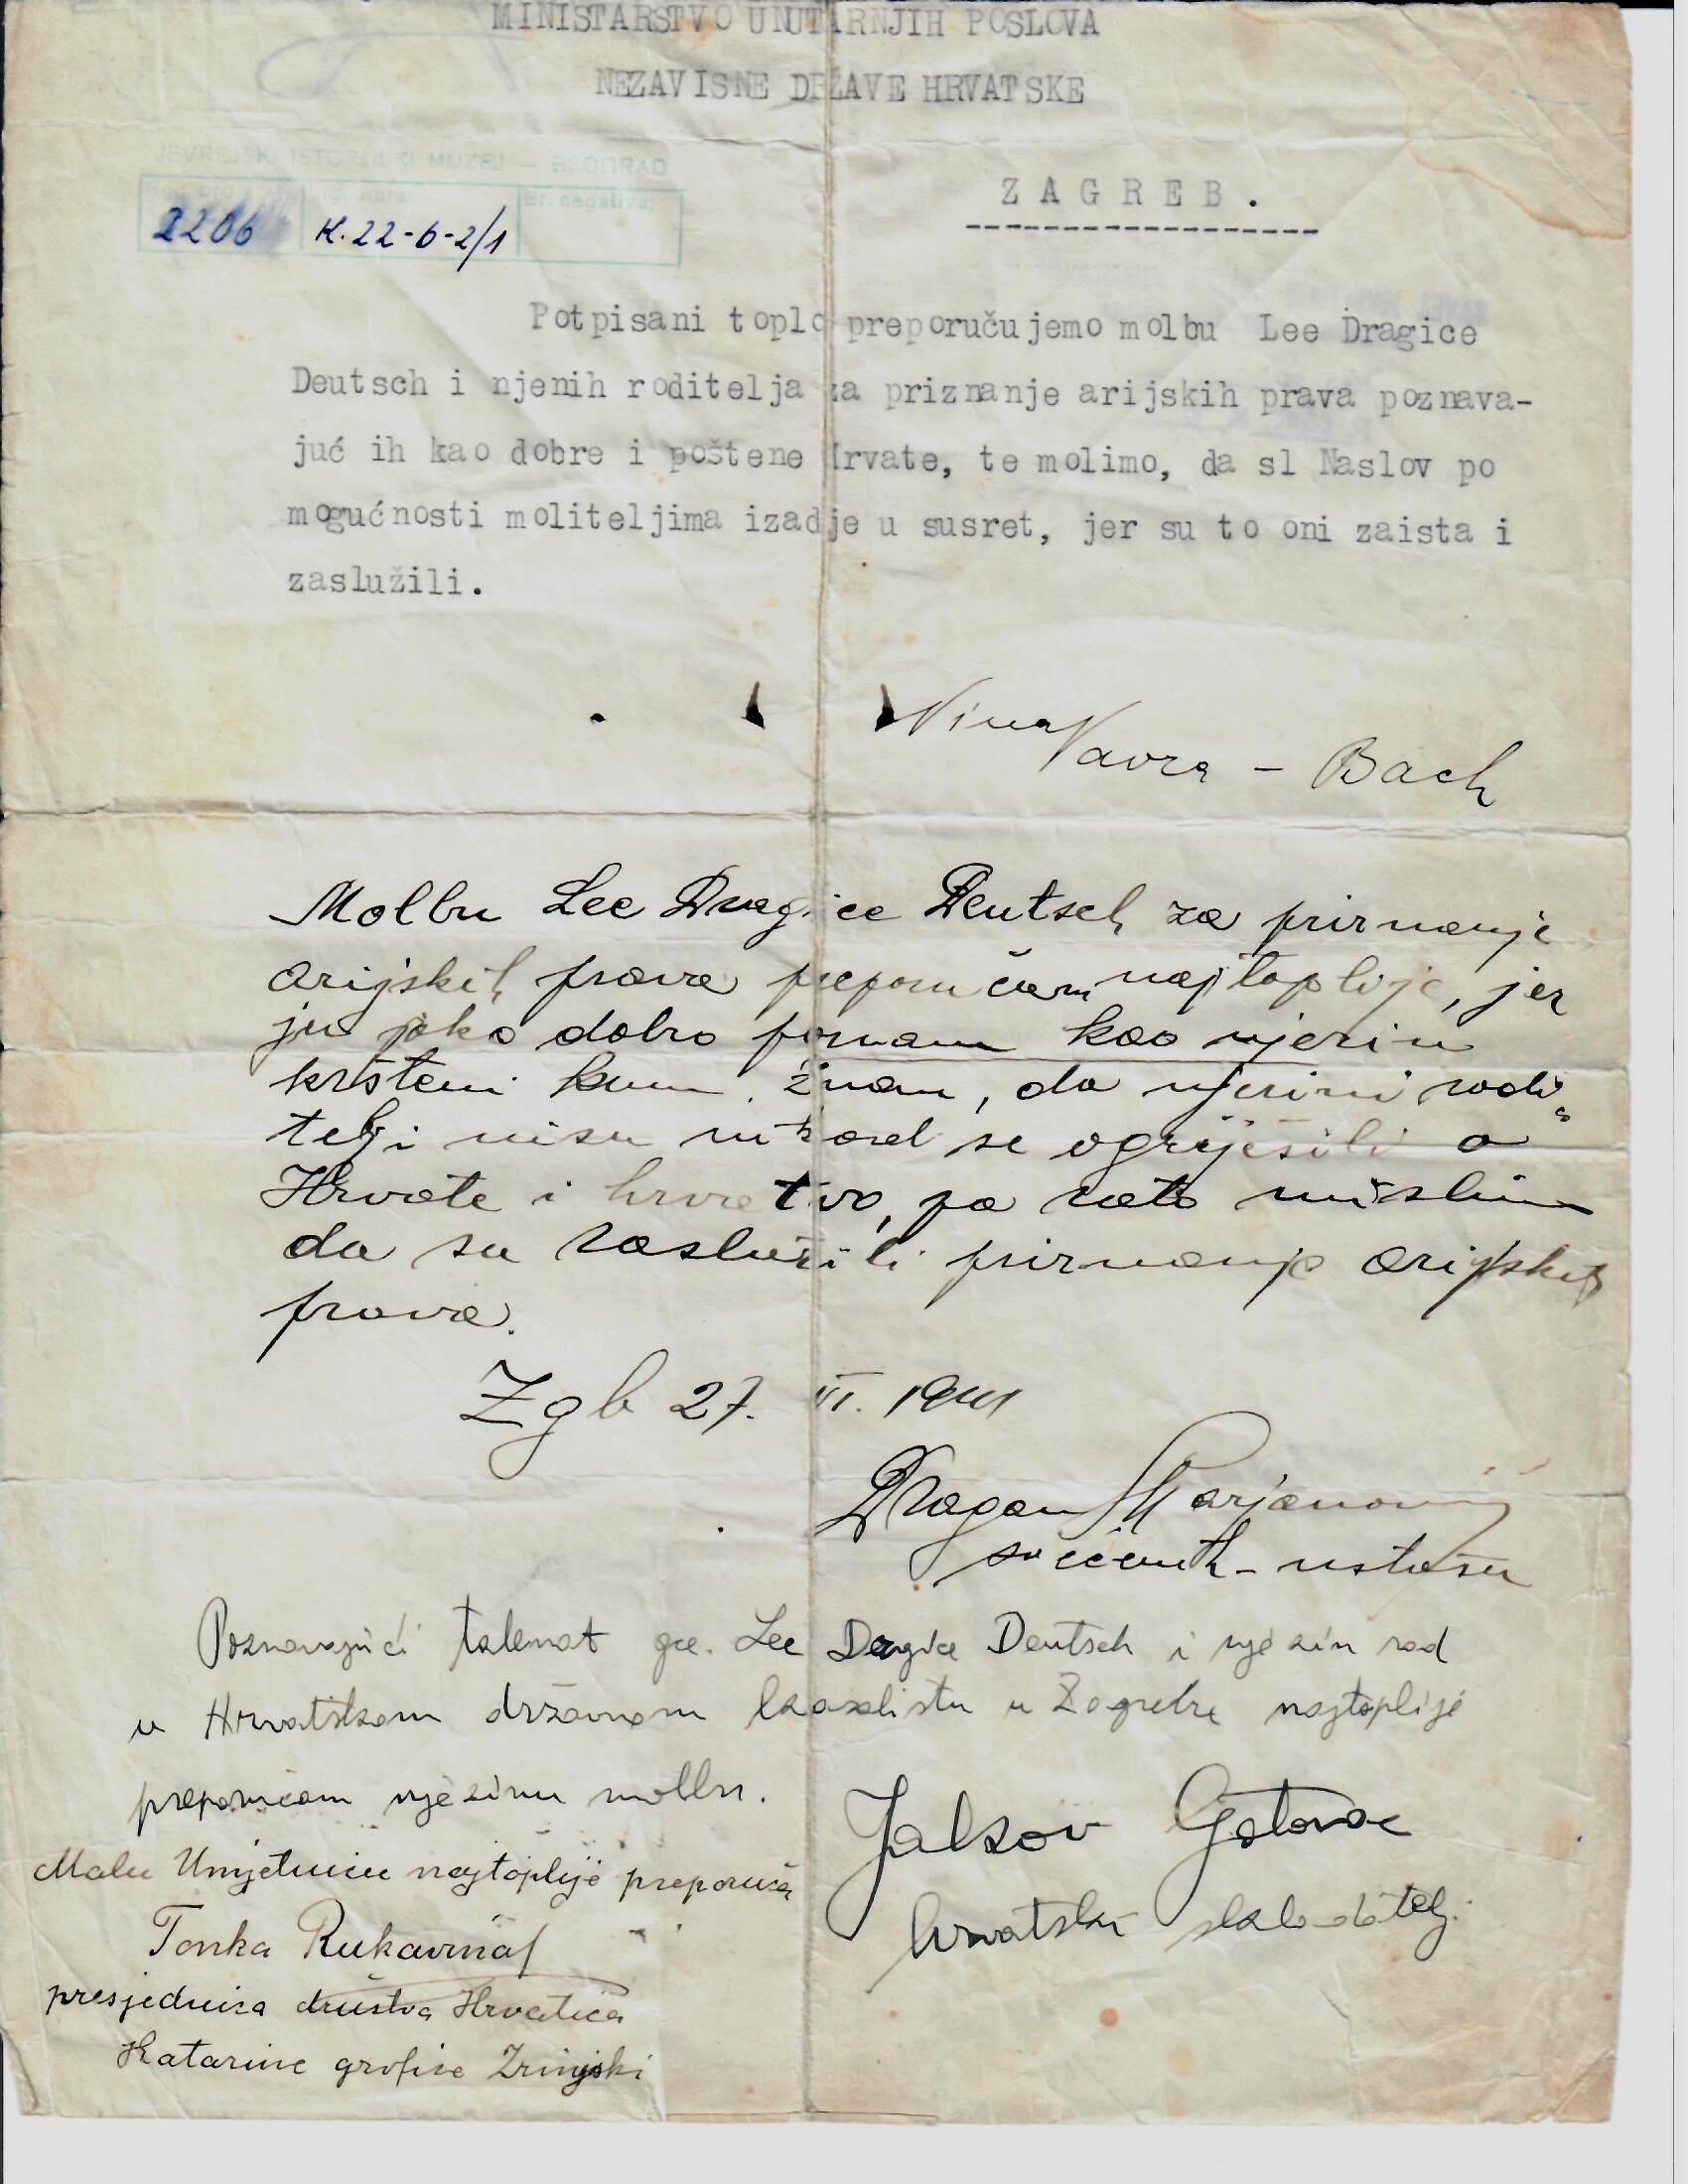 MINISTARSTVO UNUTARNJIH POSLOVA
NEZAVISNE DRŽAVE HRVATSKE
JEVREJSKI ISTORIJSKI MUZEJ — BEOGRAD
Br. negativa:
2206 K.22-6-2/1
ZAGREB.
Potpisani toplo preporučujemo molbu Lee Dragice
Deutsch i njenih roditelja za priznanje arijskih prava poznava-
juć ih kao dobre i poštene Hrvate, te molimo, da sl Naslov po
mogućnosti moliteljima izadje u susret, jer su to oni zaista i
zaslužili.
Nina Vavra - Bach
Molbu Lee Dragice Deutsch za priznanje
arijskih prava preporučam najtoplije, jer
ju jako dobro poznam kao njezin
krsteni kum. Znam, da njezini rodi-
telji nisu nikad se ogriješili o
Hrvate i hrvatstvo, pa zato mislim
da su zaslužili priznanje arijskih
prava.
Zgb 27. VI. 1941
Dragan Marjanović
svećenik - ustaša
Poznavajući talenat gce. Lee Dragice Deutsch i njezin rad
u Hrvatskom državnom kazalištu u Zagrebu najtoplije
preporučam njezinu molbu.
Jakov Gotovac
hrvatski skladatelj.
Malu Umjetnicu najtoplije preporuča
Tonka Rukavina
presjednica društva Hrvatica
Katarine grofice Zrinjski